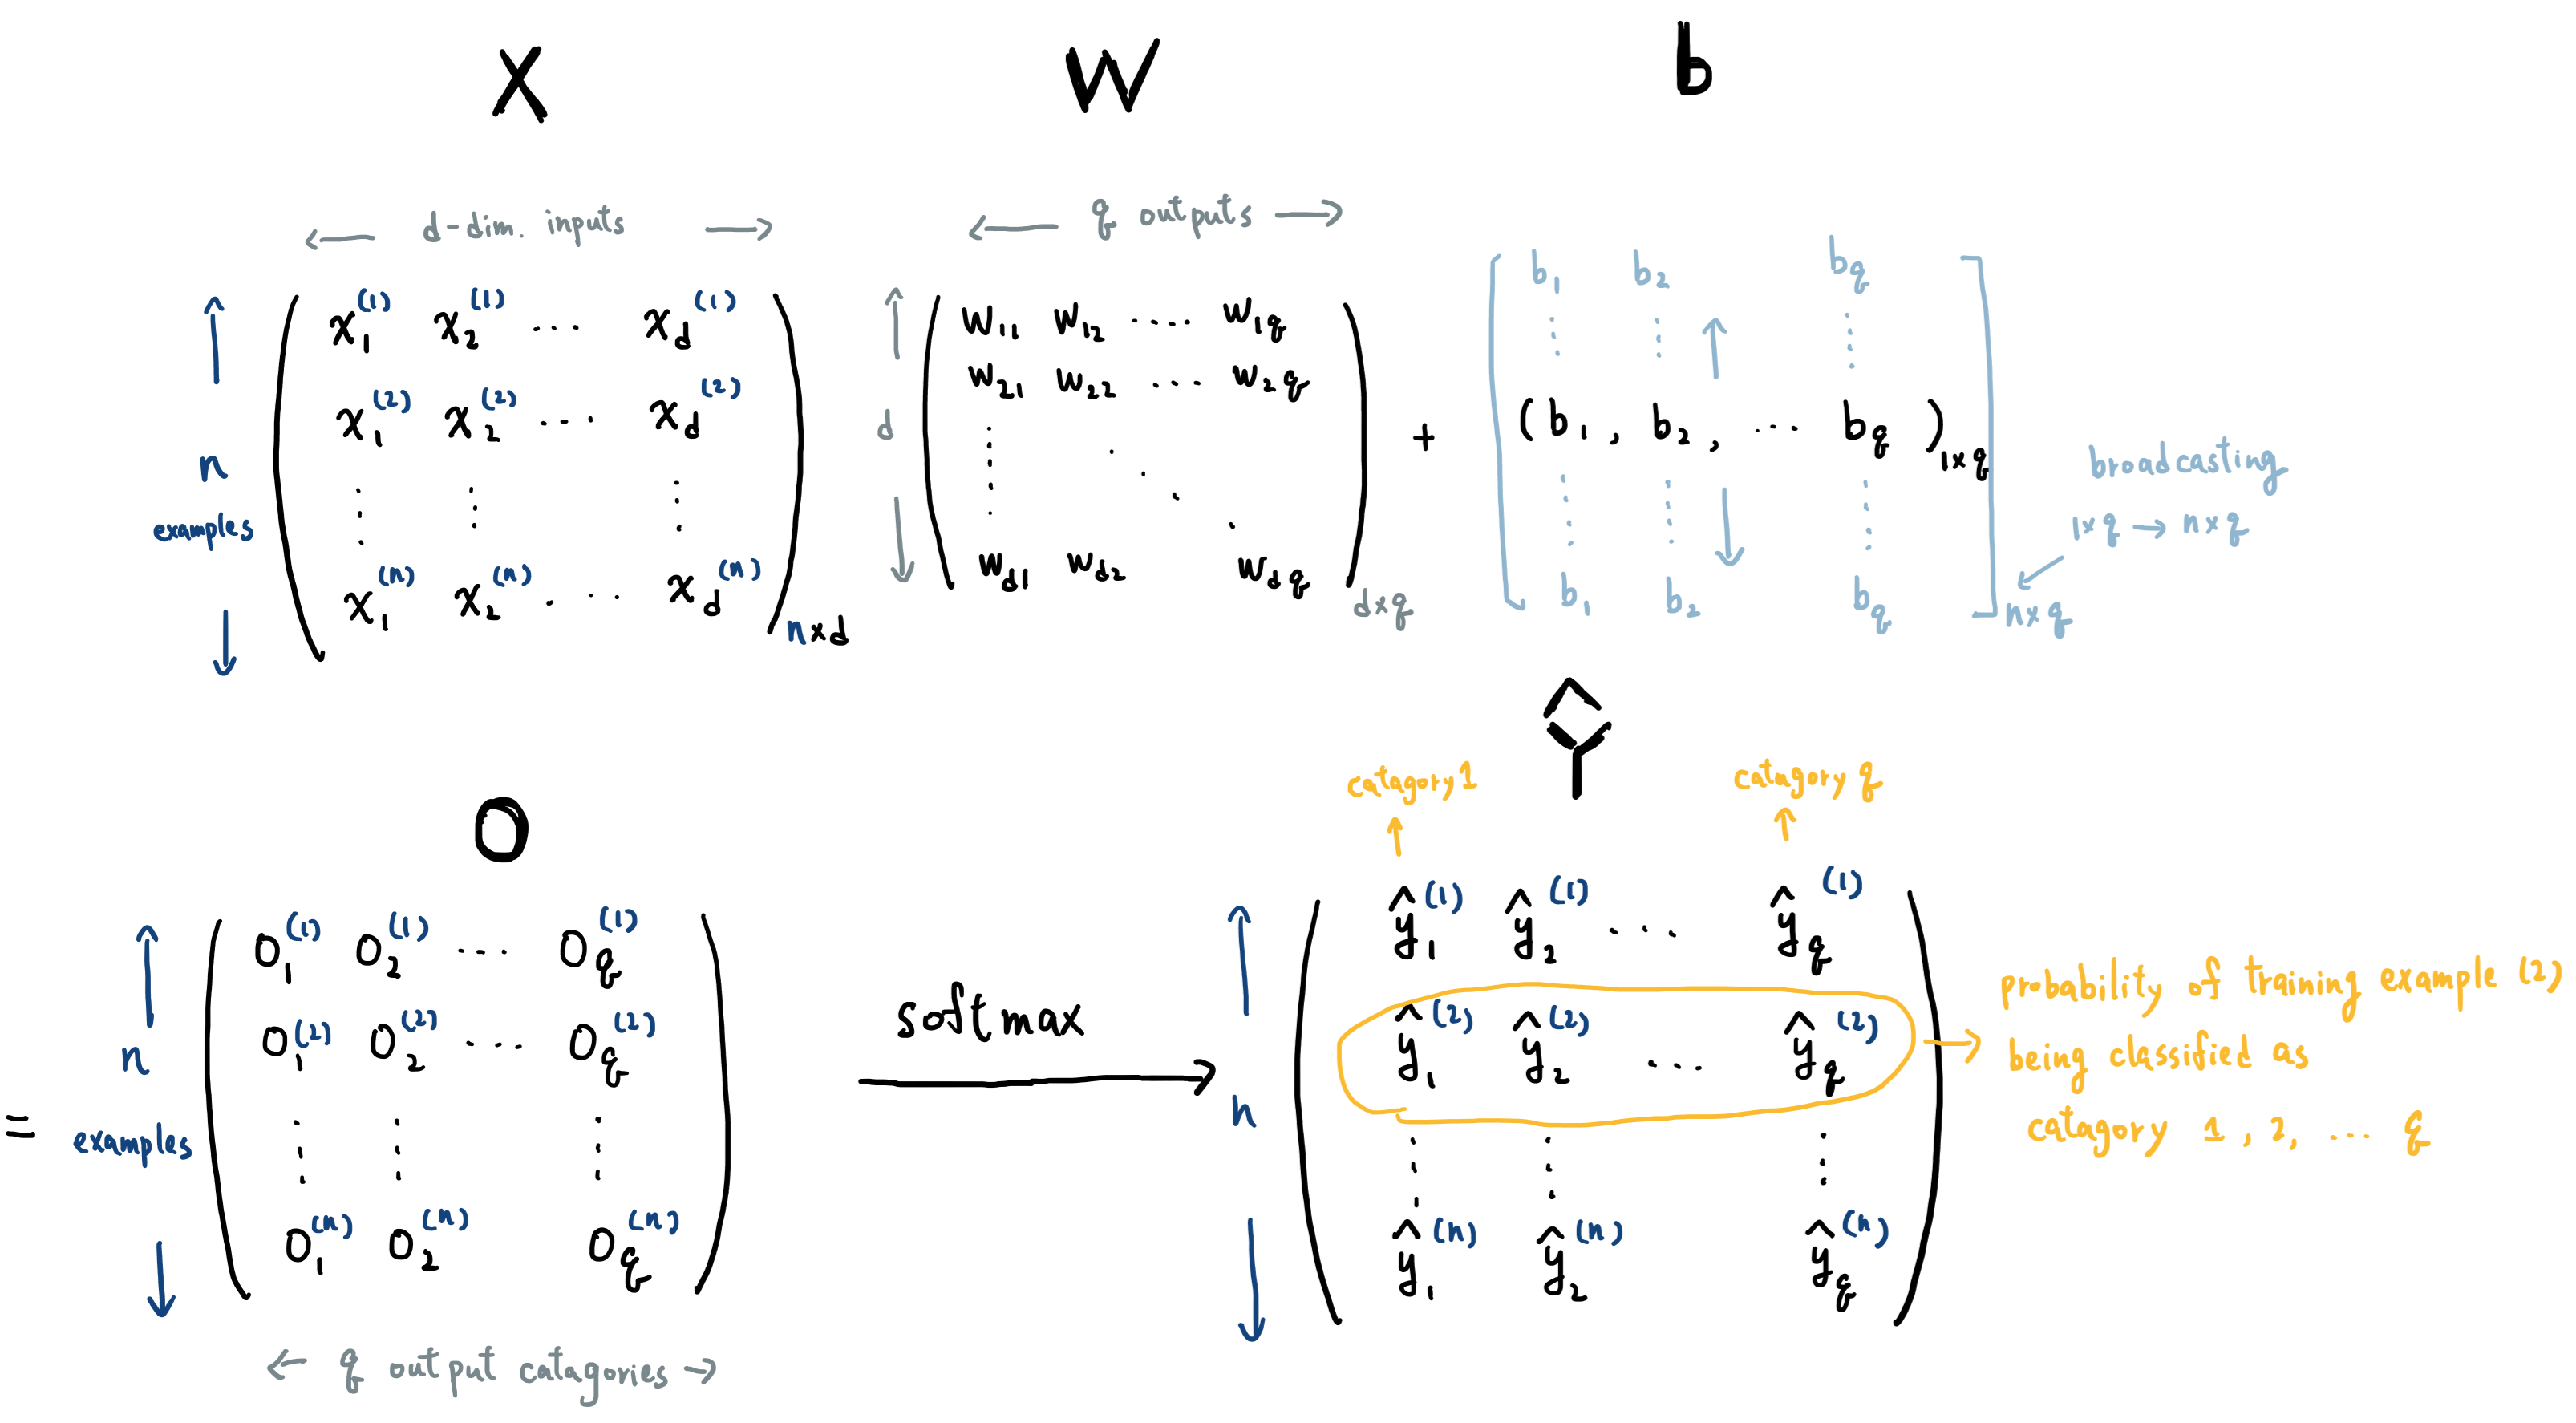 X W b
← d-dim. inputs →
← q outputs →
n
examples
x₁⁽¹⁾ x₂⁽¹⁾ ... x_d⁽¹⁾
x₁⁽²⁾ x₂⁽²⁾ ... x_d⁽²⁾
⋮ ⋮ ⋮
x₁⁽ⁿ⁾ x₂⁽ⁿ⁾ ... x_d⁽ⁿ⁾
n×d
d
w₁₁ w₁₂ .... w₁q
w₂₁ w₂₂ ... w₂q
⋮ ⋱
w_d1 w_d2 w_dq
d×q
+
b₁ b₂ bq
⋮ ⋮ ⋮
(b₁, b₂, ... bq)₁×q
⋮ ⋮ ⋮
b₁ b₂ bq
n×q
broadcasting
1×q → n×q
O
=
n
examples
O₁⁽¹⁾ O₂⁽¹⁾ ... Oq⁽¹⁾
O₁⁽²⁾ O₂⁽²⁾ ... Oq⁽²⁾
⋮ ⋮ ⋮
O₁⁽ⁿ⁾ O₂⁽ⁿ⁾ Oq⁽ⁿ⁾
← q output catagories →
softmax
Ŷ
catagory 1
catagory q
n
ŷ₁⁽¹⁾ ŷ₂⁽¹⁾ ... ŷq⁽¹⁾
ŷ₁⁽²⁾ ŷ₂⁽²⁾ ... ŷq⁽²⁾
⋮ ⋮ ⋮
ŷ₁⁽ⁿ⁾ ŷ₂⁽ⁿ⁾ ŷq⁽ⁿ⁾
probability of training example (2)
being classified as
catagory 1, 2, ... q